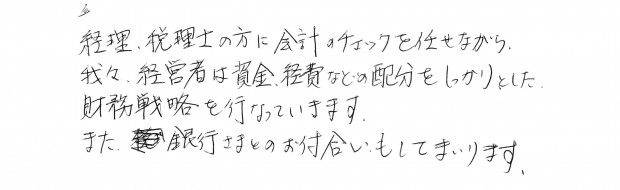 経理、税理士の方に会計のチェックを任せながら、
我々、経営者は資金、経費などの配分をしっかりとした
財務戦略を行なっていきます。
また、銀行さまとのお付合いもしてまいります。